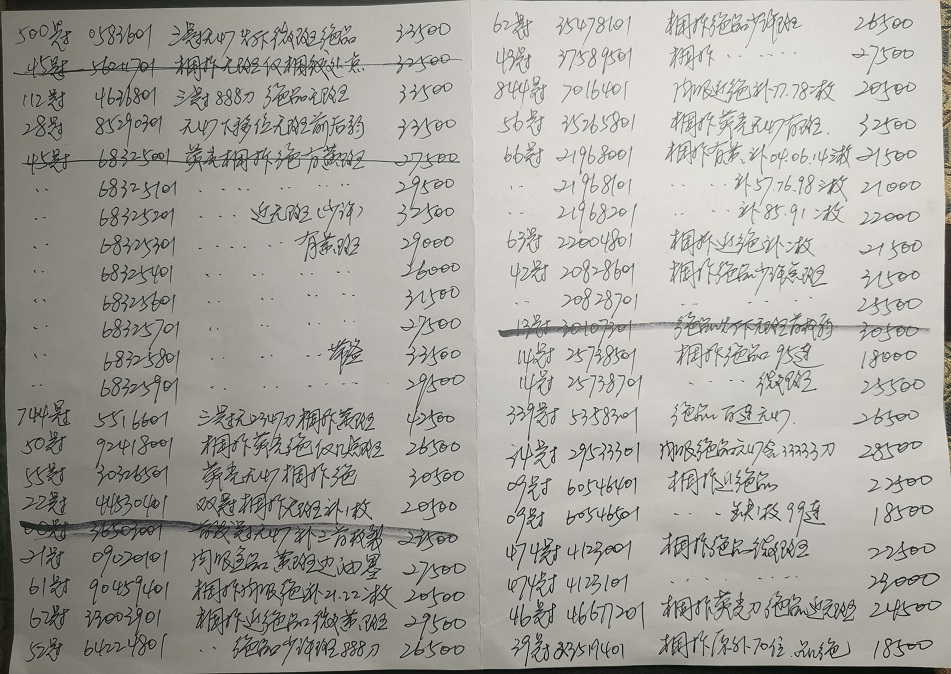 500号 0583601 三号无47 绝品 33500
45号 5624701 相拆无斑仅相纹处点 32500
112号 4636801 三号888刀 绝品无斑 33500
28号 85290301 无47 下移位无斑前后豹 33500
45号 68325001 荧壳相拆绝 有黄斑 27500
〃 68325101 29500
〃 68325201 近无斑(少许) 32500
〃 68325301 有黄斑 29000
〃 68325401 26000
68325601 31500
68325701 27500
〃 68325801 33500
〃 68325901 29500
744号 5516601 三号无0347刀相拆黄斑 42500
50号 92418001 相拆荧壳绝仅几点斑 26500
55号 30326501 荧壳无47 相拆 绝 30500
22号 44530401 双号相拆无斑补1枚 20500
36503001 23500
21号 09020101 内吸 品 黄斑边油墨 27500
61号 90459401 相拆内吸绝补21.22二枚 20500
62号 33003901 相拆近绝品微黄斑 29500
52号 64224801 〃 绝品少许斑888刀 26500
62号 35478101 相拆绝品少许斑 26500
43号 37589501 相拆 27500
844号 7016401 内吸近绝补77.78二枚 20500
56号 35265801 相拆荧壳无47有斑. 32500
66号 21968001 相拆有黄.补04.06.14三枚 21500
〃 21968101 补57.76.98三枚 21000
21968201 补85.91二枚 22000
62号 22004801 相拆近绝补二枚 21500
42号 20828601 相拆绝品少许点斑 31500
〃 20828701 25500
13号 30107301 绝品 无斑 30500
14号 25738501 相拆绝品 95连 18000
14号 25738701 微斑 25500
339号 5358301 绝品 百连无47 26500
34号 29533301 内吸绝品无47含33333刀 28500
09号 60546401 相拆近绝品 22500
09号 60546501 缺1枚99连 18500
474号 4123001 相拆绝品微斑 22500
474号 4123101 23000
46号 46677201 相拆荧壳刀绝品近无斑 24500
39号 33519401 相拆原外70位.品绝 18500